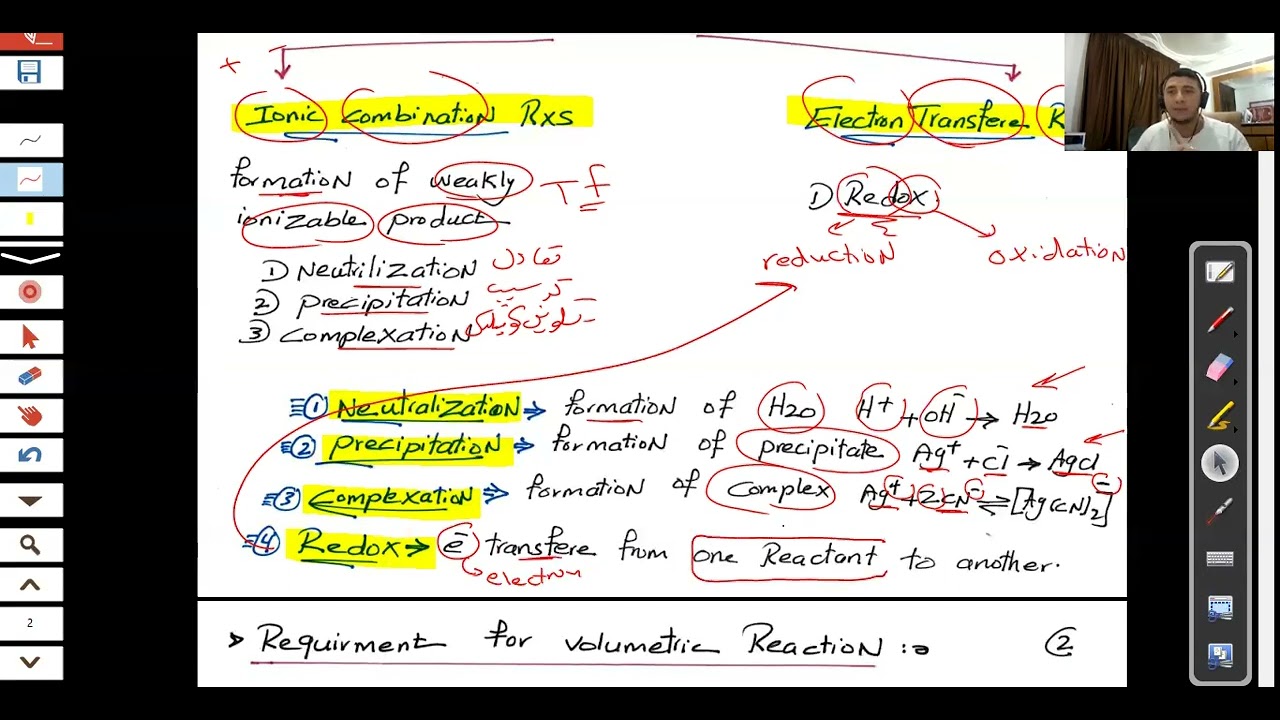 Ionic combination Rxs
Electron Transfere R
formation of weakly T f
ionizable product
1) Neutrilization تعادل
2) precipitation ترسيب
3) complexation
1) Redox
reduction
oxidation
① Neutralization → formation of H2O H+ + OH- → H2O
② precipitation → formation of precipitate Ag+ + Cl- → AgCl
③ complexation → formation of complex Ag+ + 2CN- ⇌ [Ag(CN)2]-
④ Redox → e- transfere from one Reactant to another.
electron
2
➤ Requirment for volumetric Reaction :- ②